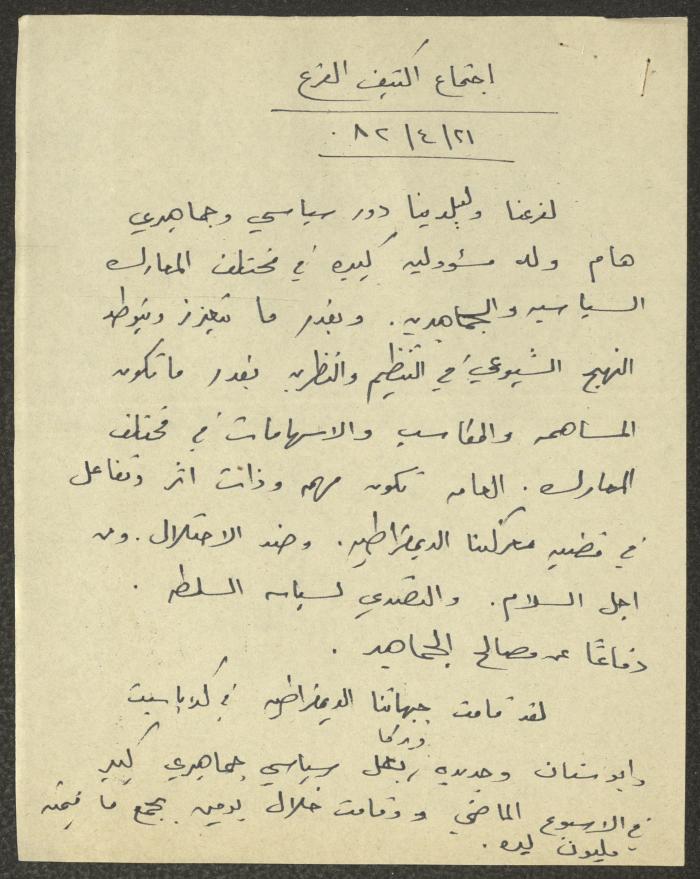 اجتماع اكتيف الفرع
٢١/٤/٨٢.
لفرعنا ولبلدينا دور سياسي وجماهيري
هام وله مسؤوليه كبيره في مختلف المعارك
السياسيه والجماهيريه. وبقدر ما تتعزز ويتوطد
النهج الشيوعي في التنظيم والنظريه بقدر ما تكون
المساهمه والمكاسب والاسهامات في مختلف
المعارك. العامه تكون مهمه وذات اثر وتفاعل
في قضيه معركتنا الديمقراطيه. وضد الاحتلال. ومن
اجل السلام. والتصدي لسياسه السلطه.
دفاعًا عن مصالح الجماهير.
لقد قامت جبهاتنا الديمقراطيه في
وابوسنان وجديده ويركا بعمل سياسي جماهيري كبير
في الاسبوع الماضي وقامت خلال يومين بجمع ما قيمته
مليون ليره.